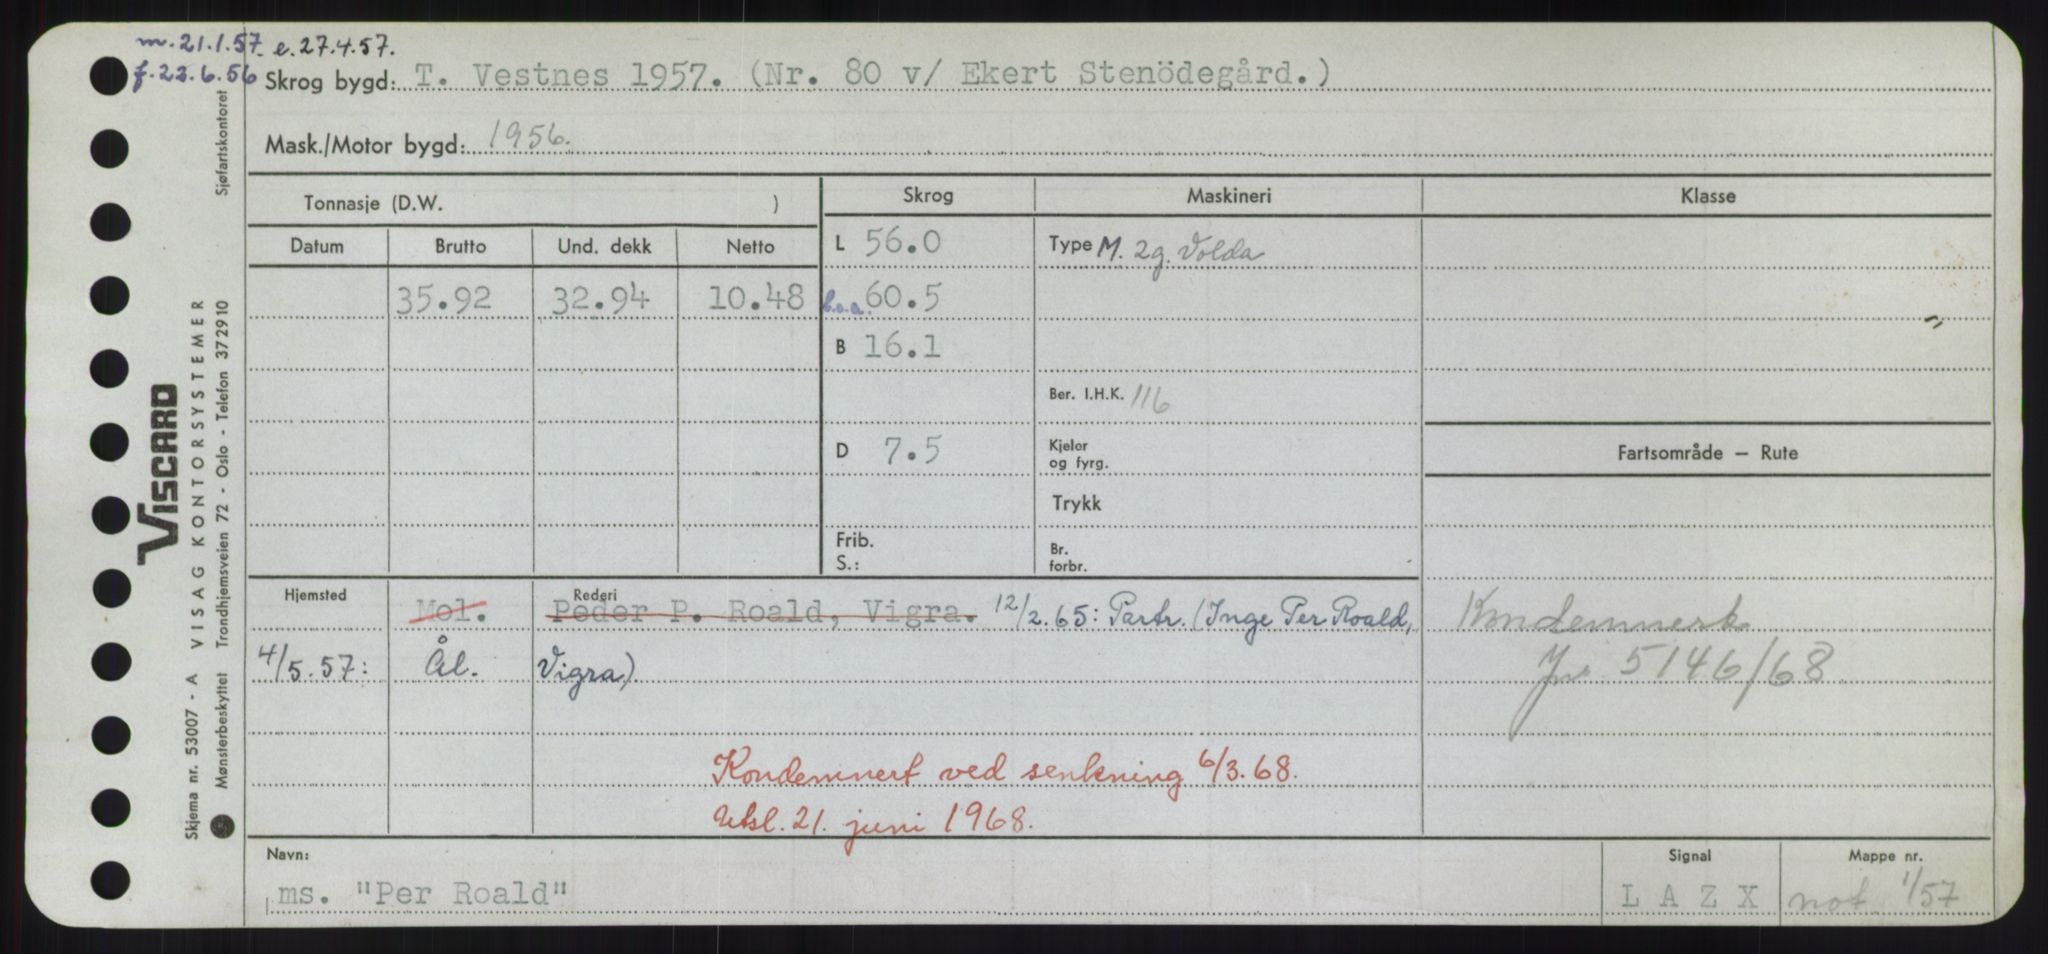 m. 21.1.57. e. 27.4.57.
f. 22.6.56 Skrog bygd: T. Vestnes 1957. (Nr. 80 v/ Ekert Stenödegård.)
Mask./Motor bygd: 1956.
Tonnasje (D.W. ) Skrog Maskineri Klasse
Datum Brutto Und. dekk Netto L 56.0 Type M. 2g. Volda
35.92 32.94 10.48 l.o.a. 60.5
B 16.1
Ber. I.H.K. 116
D 7.5 Kjeler
og fyrg.
Fartsområde — Rute
Trykk
Frib.
S.:
Br.
forbr.
Hjemsted Rederi
Mol. Peder P. Roald, Vigra. 12/2.65: Partr. (Inge Per Roald, Kondemnert
4/5.57: Ål. Vigra) Jnr 5146/68
Kondemnert ved senkning 6/3.68.
Utsl. 21. juni 1968.
Navn: Signal Mappe nr.
ms. "Per Roald" L A Z X not 1/57
VISCARD
Skjema nr. 53007 - A VISAG KONTORSYSTEMER
Mønsterbeskyttet Trondhjemsveien 72 - Oslo - Telefon 372910 Sjøfartskontoret